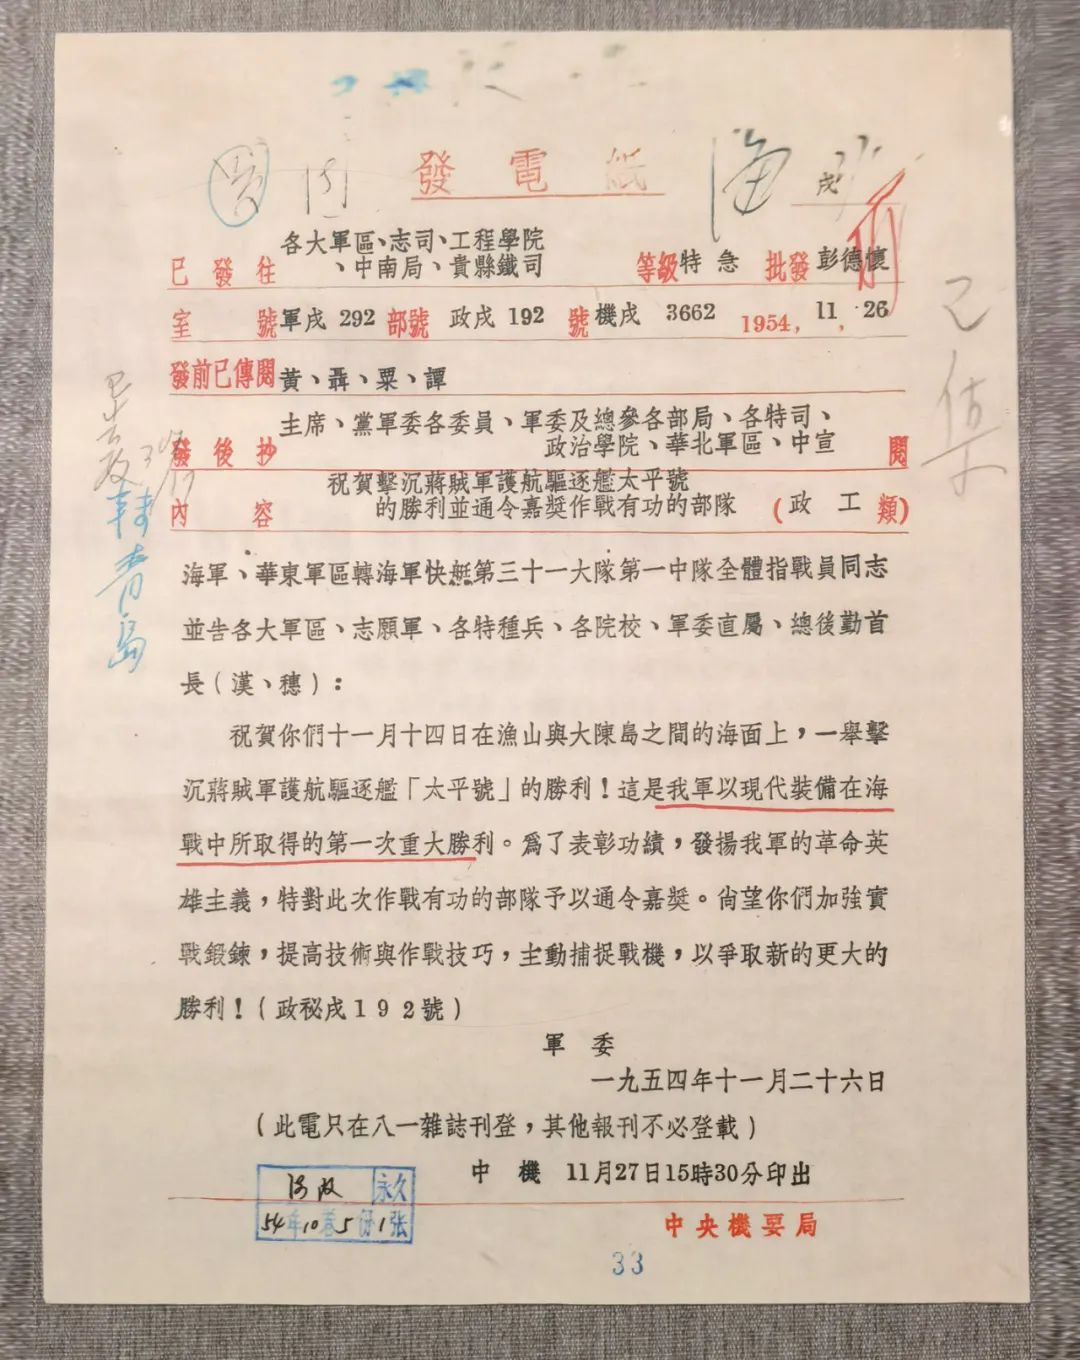 發電紙
海
戌
各大軍區、志司、工程學院
已發往、中南局、貴縣鐵司 等級特急 批發彭德懷
室號軍戌292部號 政戌192 號機戌 3662 1954, 11, 26
發前已傳閱黃、聶、粟、譚
主席、黨軍委各委員、軍委及總參各部局、各特司、
發後抄 政治學院、華北軍區、中宣 閱
祝賀擊沉蔣賊軍護航驅逐艦太平號
內容 的勝利並通令嘉獎作戰有功的部隊 (政工類)
海軍、華東軍區轉海軍快艇第三十一大隊第一中隊全體指戰員同志
並告各大軍區、志願軍、各特種兵、各院校、軍委直屬、總後勤首
長(漢、穗):
祝賀你們十一月十四日在漁山與大陳島之間的海面上,一舉擊
沉蔣賊軍護航驅逐艦「太平號」的勝利!這是我軍以現代裝備在海
戰中所取得的第一次重大勝利。爲了表彰功績,發揚我軍的革命英
雄主義,特對此次作戰有功的部隊予以通令嘉獎。尙望你們加強實
戰鍛鍊,提高技術與作戰技巧,主動捕捉戰機,以爭取新的更大的
勝利!(政秘戌192號)
軍委
一九五四年十一月二十六日
(此電只在八一雜誌刊登,其他報刊不必登載)
中機 11月27日15時30分印出
永久
54年10卷5份1张
中央機要局
33
青島
已